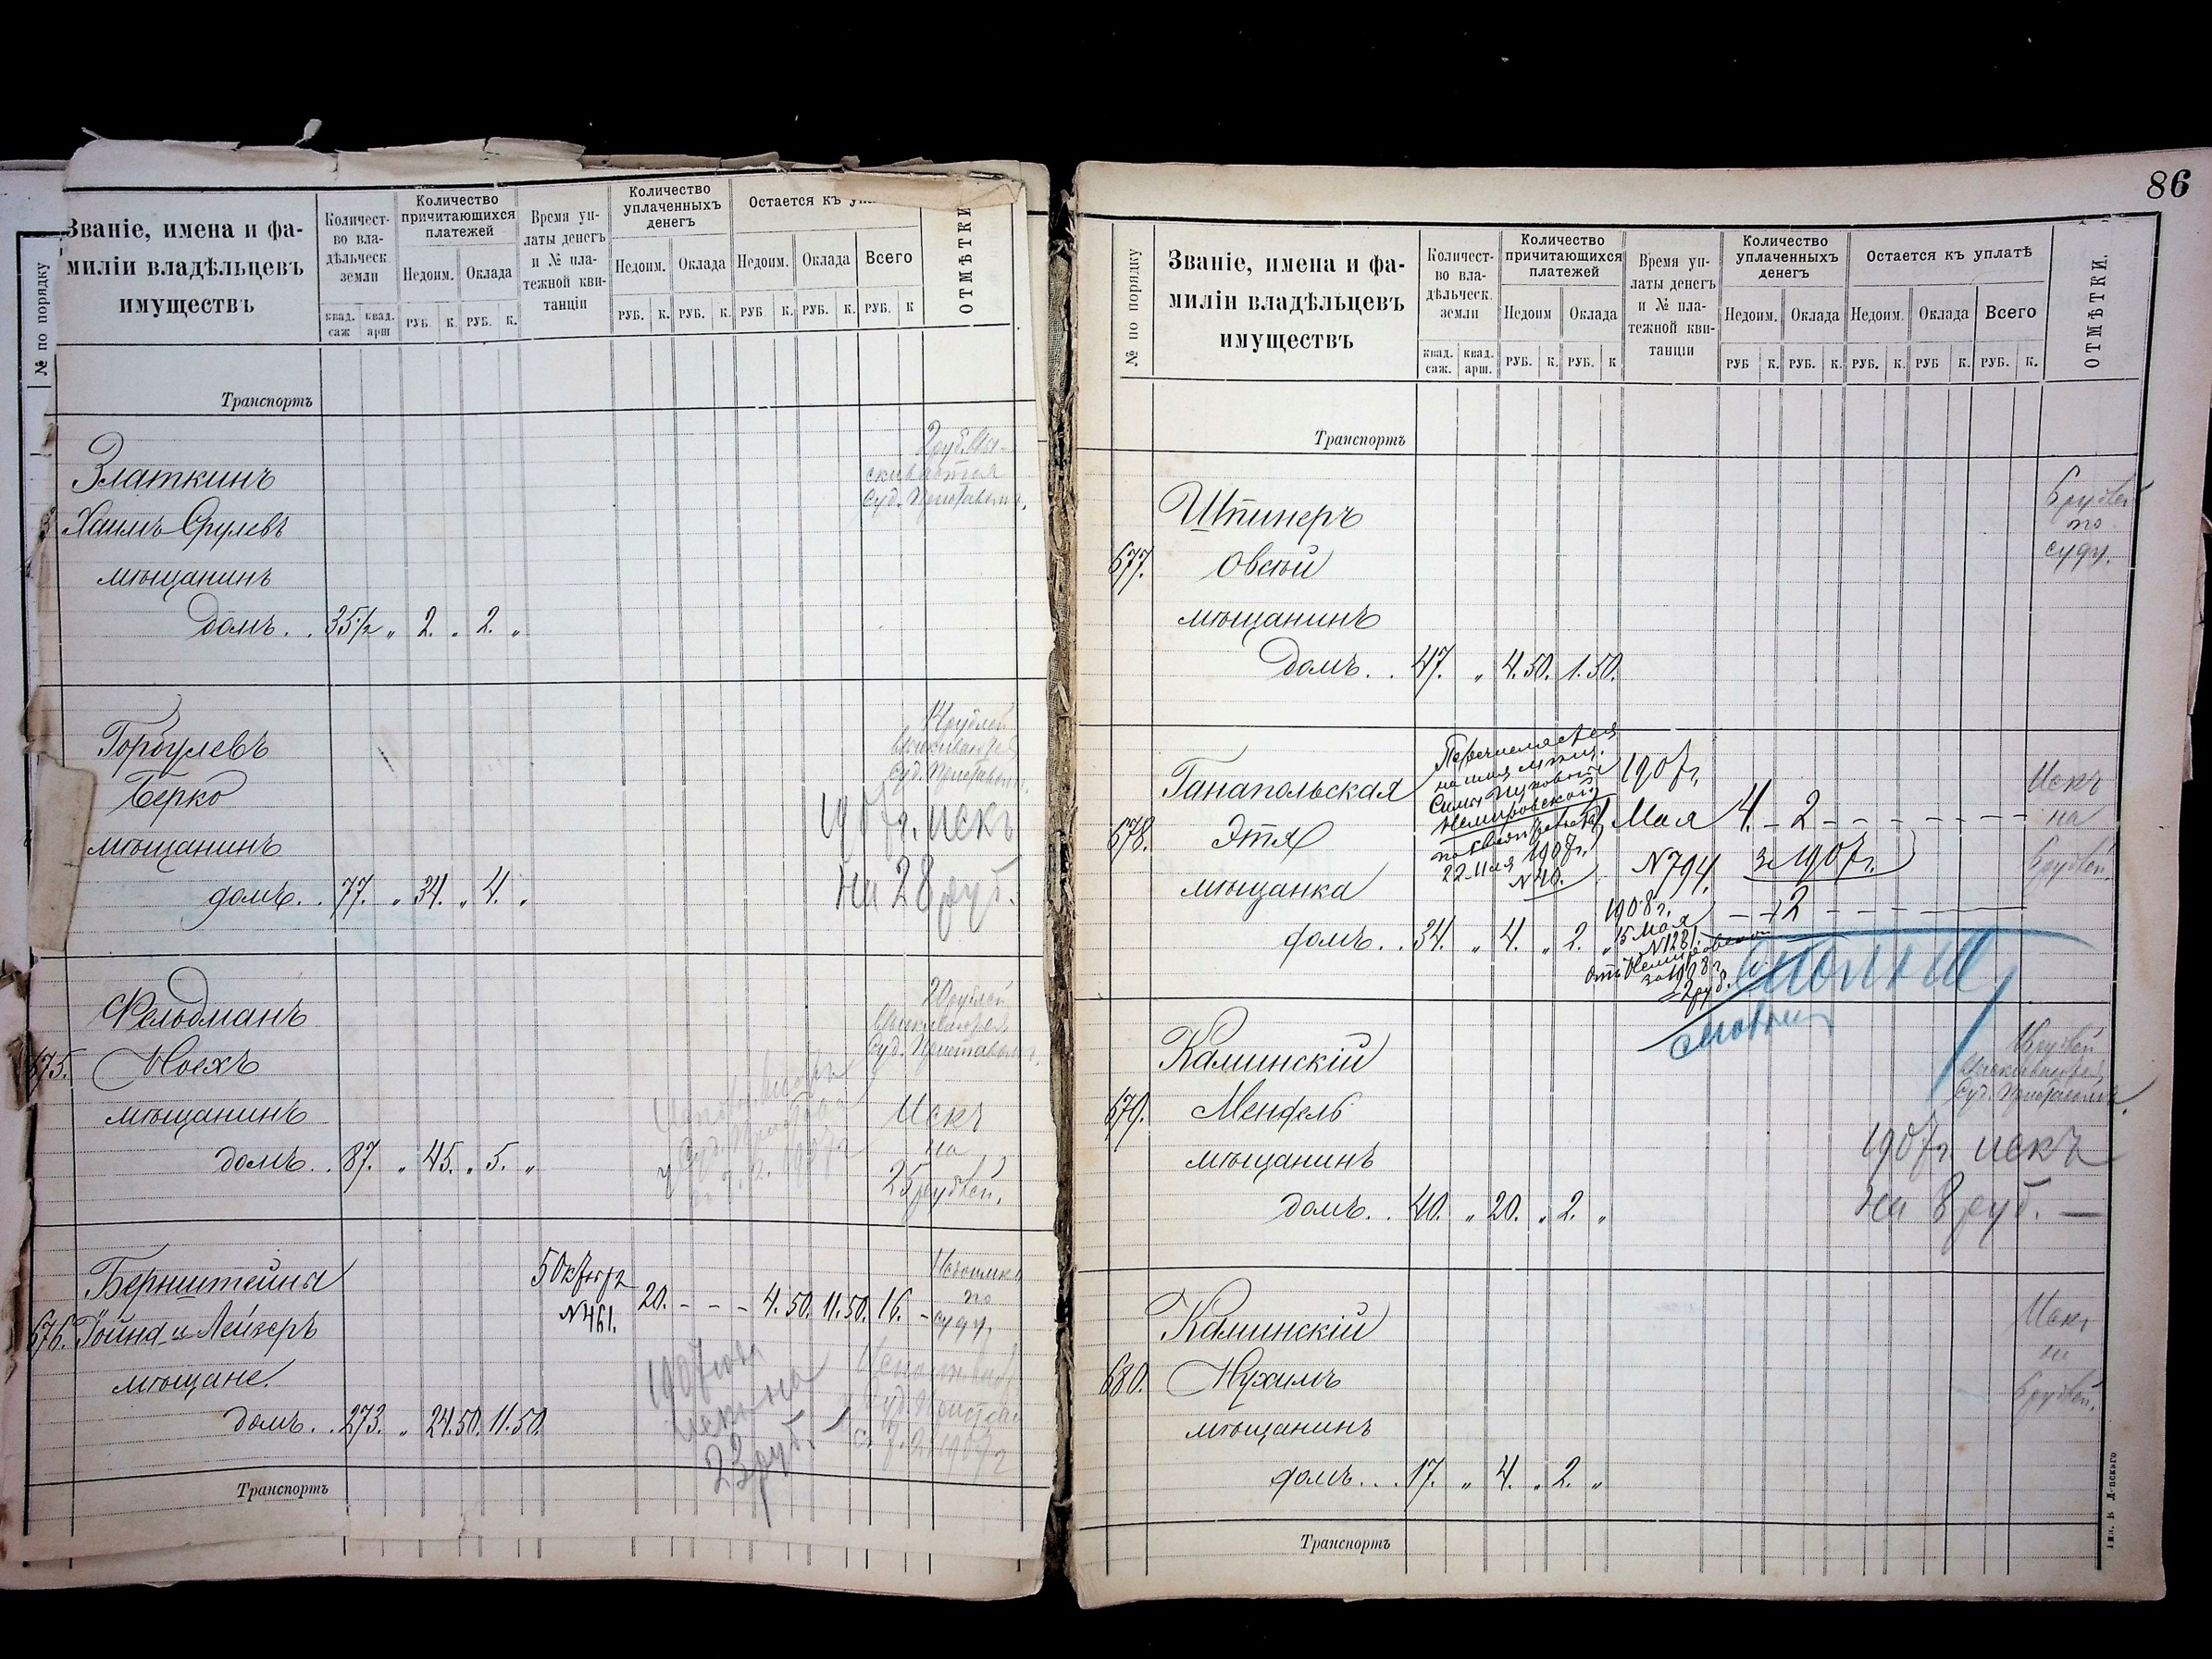 86
№ по порядку
Званіе, имена и фа-
миліи владѣльцевъ
имуществъ
Количест-
во вла-
дѣльческ.
земли
квад. саж квад. арш
Количество
причитающихся
платежей
Недоим. Оклада
РУБ К. РУБ. К.
Время уп-
латы денегъ
и № пла-
тежной кви-
танціи
Количество
уплаченныхъ
денегъ
Недоим. Оклада
РУБ. К. РУБ. К.
Остается къ
Недоим. Оклада Всего
РУБ. К. РУБ. К. РУБ. К
ОТМѢТКИ
Транспортъ
Златкинъ
Хаимъ Срулевъ
мѣщанинъ
домъ. . 35½ „ 2. „ 2. „
2 руб. взы-
скивается
Суд. Приставомъ.
Горбулевъ
Берко
мѣщанинъ
домъ. . 77. „ 34. „ 4. „
14 рублей
взыскиваются
Суд. Приставомъ.
1907г. искъ
на 28 руб.
Фельдманъ
675. Моехъ
мѣщанинъ
домъ. . 87. „ 45. „ 5. „
20 рублей
взыскиваются
Суд. Приставомъ.
Искъ
на
25 рублей.
Бернштейны
676. Гойнд и Лейзеръ
мѣщане.
домъ. . 273. „ 24.50. 11.50.
5 Октября
№ 461. 20. - - - 4.50. 11.50. 16. -
Недоимка
по
суду.
1907 года
искъ на
23 руб.
Транспортъ
№ по порядку
Званіе, имена и фа-
миліи владѣльцевъ
имуществъ
Количест-
во вла-
дѣльческ.
земли
квад. саж. квад. арш.
Количество
причитающихся
платежей
Недоим Оклада
РУБ. К. РУБ. К
Время уп-
латы денегъ
и № пла-
тежной кви-
танціи
Количество
уплаченныхъ
денегъ
Недоим. Оклада
РУБ К. РУБ. К.
Остается къ уплатѣ
Недоим. Оклада Всего
РУБ. К. РУБ К. РУБ. К.
ОТМѢТКИ.
Транспортъ
Шпинеръ
677. Овсѣй
мѣщанинъ
домъ. . 47. „ 4.50. 1.50.
6 рублей
по
суду.
Ганапольская
678. Этя
мѣщанка
домъ. . 34. „ 4. „ 2. „
Перечисляется
на имя мѣщ.
Немировской
22 Мая 1908г.
№ 40.
1907г.
1 Мая 4. - 2 - - - - - - -
№ 794. за 1907г.
1908г. - - 2 - - -
15 Мая
№ 1281.
отъ Немировской
за 1908г.
2 руб.
Искъ
на
6 рублей.
Каминскій
679. Мендель
мѣщанинъ
домъ. . 40. „ 20. „ 2. „
взыскиваются
Суд. Приставомъ.
1907г. искъ
на 8 руб. —
Каминскій
680. Нухимъ
мѣщанинъ
домъ. . . 17. „ 4. „ 2. „
Искъ
на
6 рублей.
Транспортъ